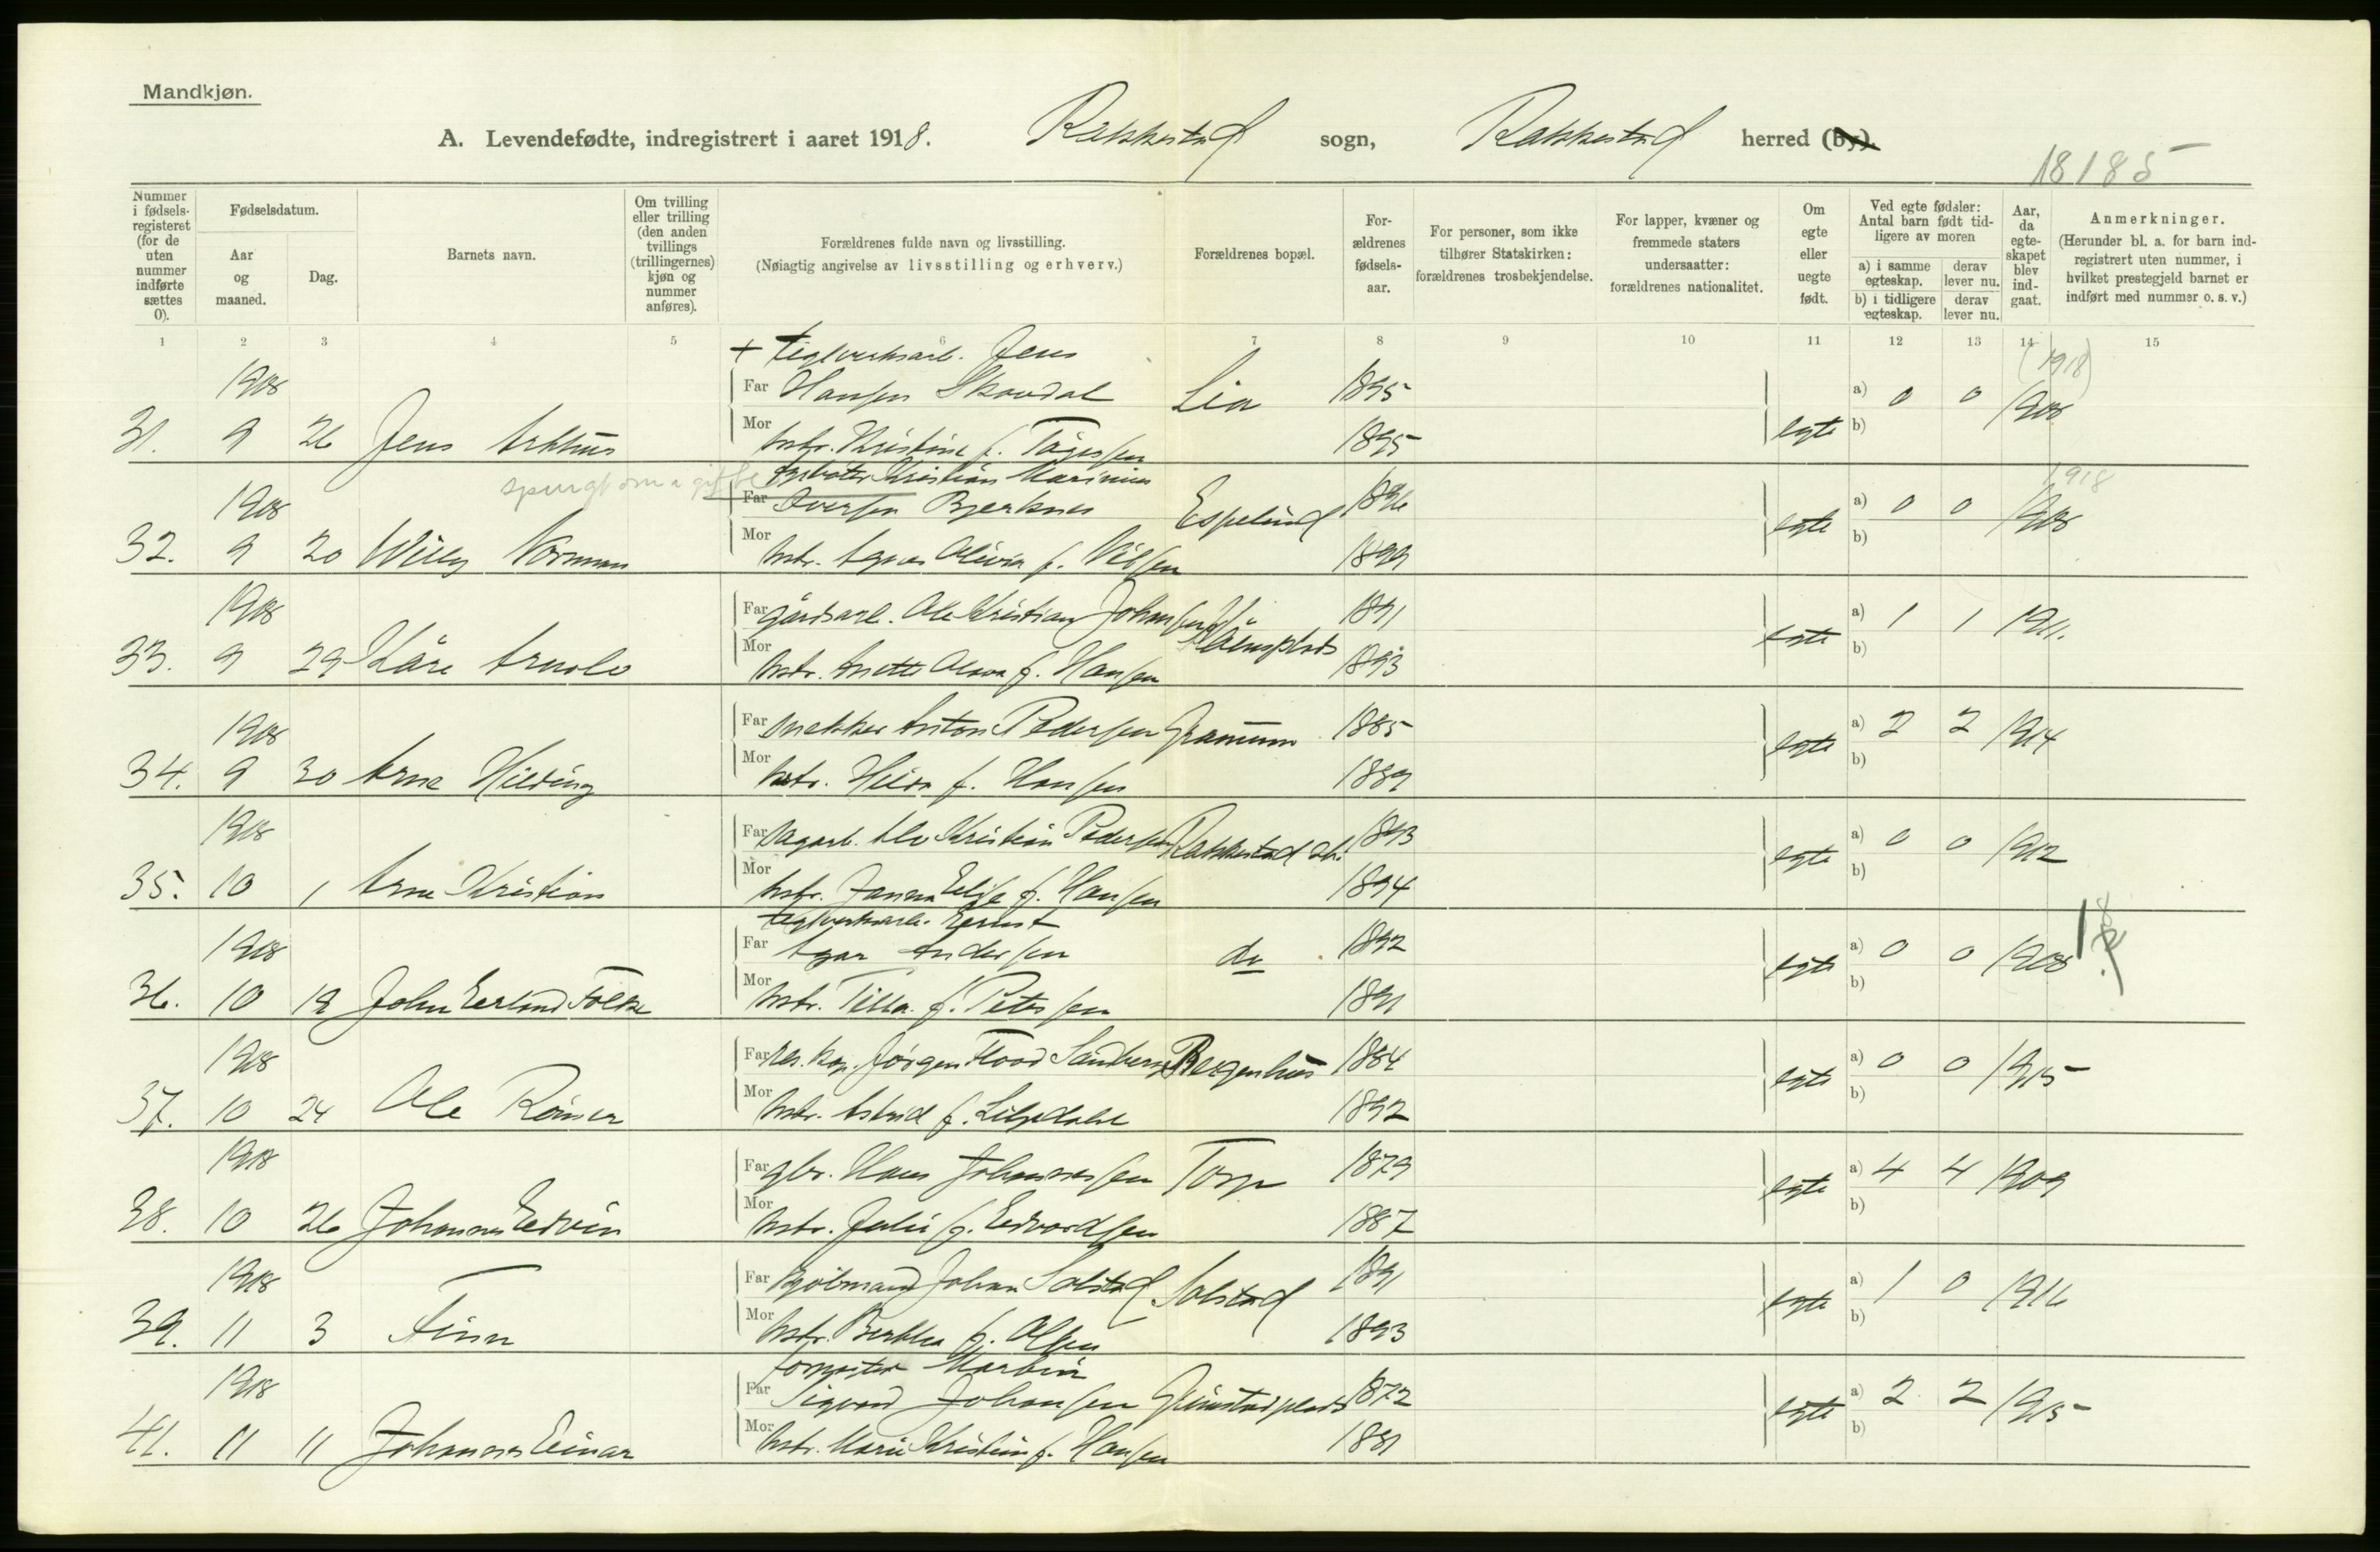 Mandkjøn.
A. Levendefødte, indregistrert i aaret 1918. Rakkestad sogn, Rakkestad herred (by).
18185
Nummer i fødsels-registeret (for de uten nummer indførte sættes 0).
Fødselsdatum.
Aar og maaned.
Dag.
Barnets navn.
Om tvilling eller trilling (den anden tvillings (trillingernes) kjøn og nummer anføres).
Forældrenes fulde navn og livsstilling.
(Nøiagtig angivelse av livsstilling og erhverv.)
Forældrenes bopæl.
For-ældrenes fødsels-aar.
For personer, som ikke tilhører Statskirken: forældrenes trosbekjendelse.
For lapper, kvæner og fremmede staters undersaatter: forældrenes nationalitet.
Om egte eller uegte født.
Ved egte fødsler: Antal barn født tid-ligere av moren
a) i samme egteskap.
derav lever nu.
b) i tidligere egteskap.
derav lever nu.
Aar, da egte-skapet blev ind-gaat.
Anmerkninger.
(Herunder bl. a. for barn ind-registrert uten nummer, i hvilket prestegjeld barnet er indført med nummer o. s. v.)
1 2 3 4 5 6 7 8 9 10 11 12 13 14 15
+ teglverksarb. Jens
(1918)
1918 Far Hansen Skovdal Lia 1895 a) 0 0 1918
31. 9 26 Jens Arthur Mor hstr. Kristine f. 1895 egte b)
Kristian Marinius
1918 Far Iversen Bjerknes Espelund 1896 a) 0 0 1918
1918
32. 9 20 Willy Norman Mor hstr. Agnes Olivia f. Nilsen 1899 egte b)
1918 Far gårdsarb. Ole Kristian Johansen 1891 a) 1 1 1911.
33. 9 29 Kåre Arnold Mor hstr. f. Hansen 1893 egte b)
1918 Far snekker Anton Pedersen 1885 a) 2 2 1914
34. 9 30 Arne Hilding Mor hstr. f. Hansen 1889 egte b)
1918 Far Kristian Pedersen Rakkestad st. 1893 a) 0 0 1912
35. 10 1 Arne Kristian Mor hstr. Janna Elise f. Hansen 1894 egte b)
teglverksarb. Ernst
1918 Far Andersen do 1892 a) 0 0 1918
36. 10 12 John Erland Folke Mor hstr. Tilla f. Petersen 1891 egte b)
1918 Far res. kap. Jørgen Flood Bergenhus 1884 a) 0 0 1915
37. 10 24 Ole Mor hstr. Astrid f. Liljedahl 1892 egte b)
1918 Far gbr. Hans Johannessen Torp 1879 a) 4 4 1909
38. 10 26 Johannes Edvin Mor hstr. Julie f. Edvardsen 1887 egte b)
1918 Far Johan Solstad Solstad 1891 a) 1 0 1916
39. 11 3 Finn Mor hstr. Berthea f. Olsen 1893 egte b)
Martin
1918 Far Sigvard Johansen 1872 a) 2 2 1915
41. 11 11 Johannes Einar Mor hstr. Marie Kristine f. Hansen 1881 egte b)